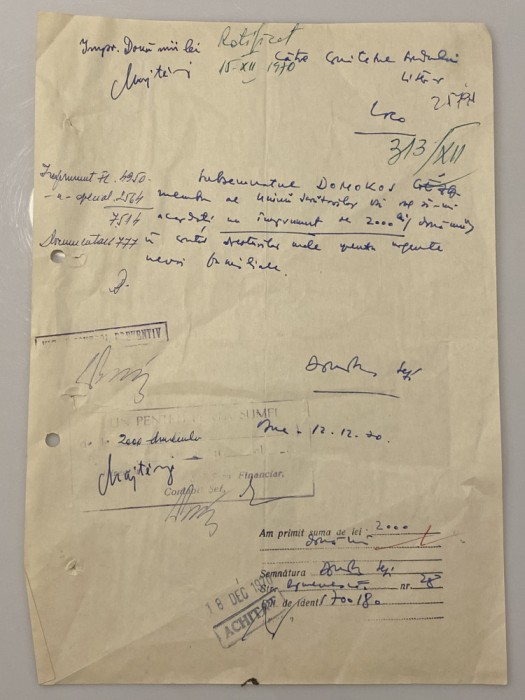 Impr. Două mii lei
Majtényi
Ratificat
15-XII 1970
către Comitetul Fondului
Literar
Loco
313/XII
Împrumut Fl. 4950-
-"- special 2564
7514
Documentare 777
Subsemnatul DOMOKOS GÉZA
membru al Uniunii Scriitorilor vă rog să-mi
acordați un împrumut de 2000 lei (două mii)
în contul drepturilor mele pentru urgente
nevoi familiale.
PREVENTIV
BUN PENTRU SUMEI
2000 douămii lei
Majtényi
Financiar,
Control
Buc. 12.12.70.
Am primit suma de lei: 2000
două mii
Semnătura
Str. nr. 28
de identi 700180
18 DEC 1970
ACHITAT